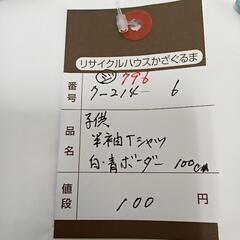 リサイクルハウスかざぐるま
796
番号 ク-214- 6
品名 子供
半袖Tシャツ
白・青ボーダー 100cm
値段 100 円